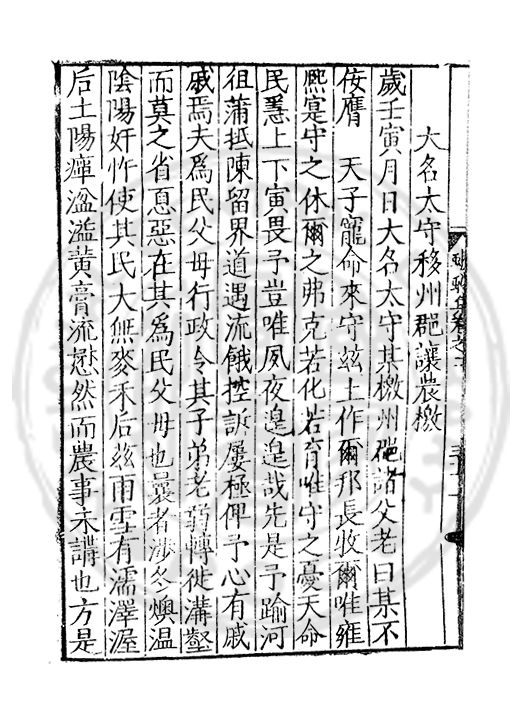 大名太守移州郡讓農檄
歲壬寅月日大名太守某檄州郡諸父老曰某不
佞膺　天子寵命來守玆土作爾邦長牧爾唯雍
熈寔守之休爾之弗克若化若育唯守之憂天命
民嵒上下寅畏予豈唯夙夜遑遑哉先是予踰河
徂蒲抵陳留界道遇流餓控訴屢極俾予心有戚
戚焉夫爲民父母行政令其子弟老弱轉徙溝壑
而莫之省𢙣惡在其爲民父母也曩者涉冬燠温
陰陽奸忤使其民大無麥禾后玆雨雪有濡澤渥
后土陽癉瀊溢黄膏流愻然而農事未講也方是